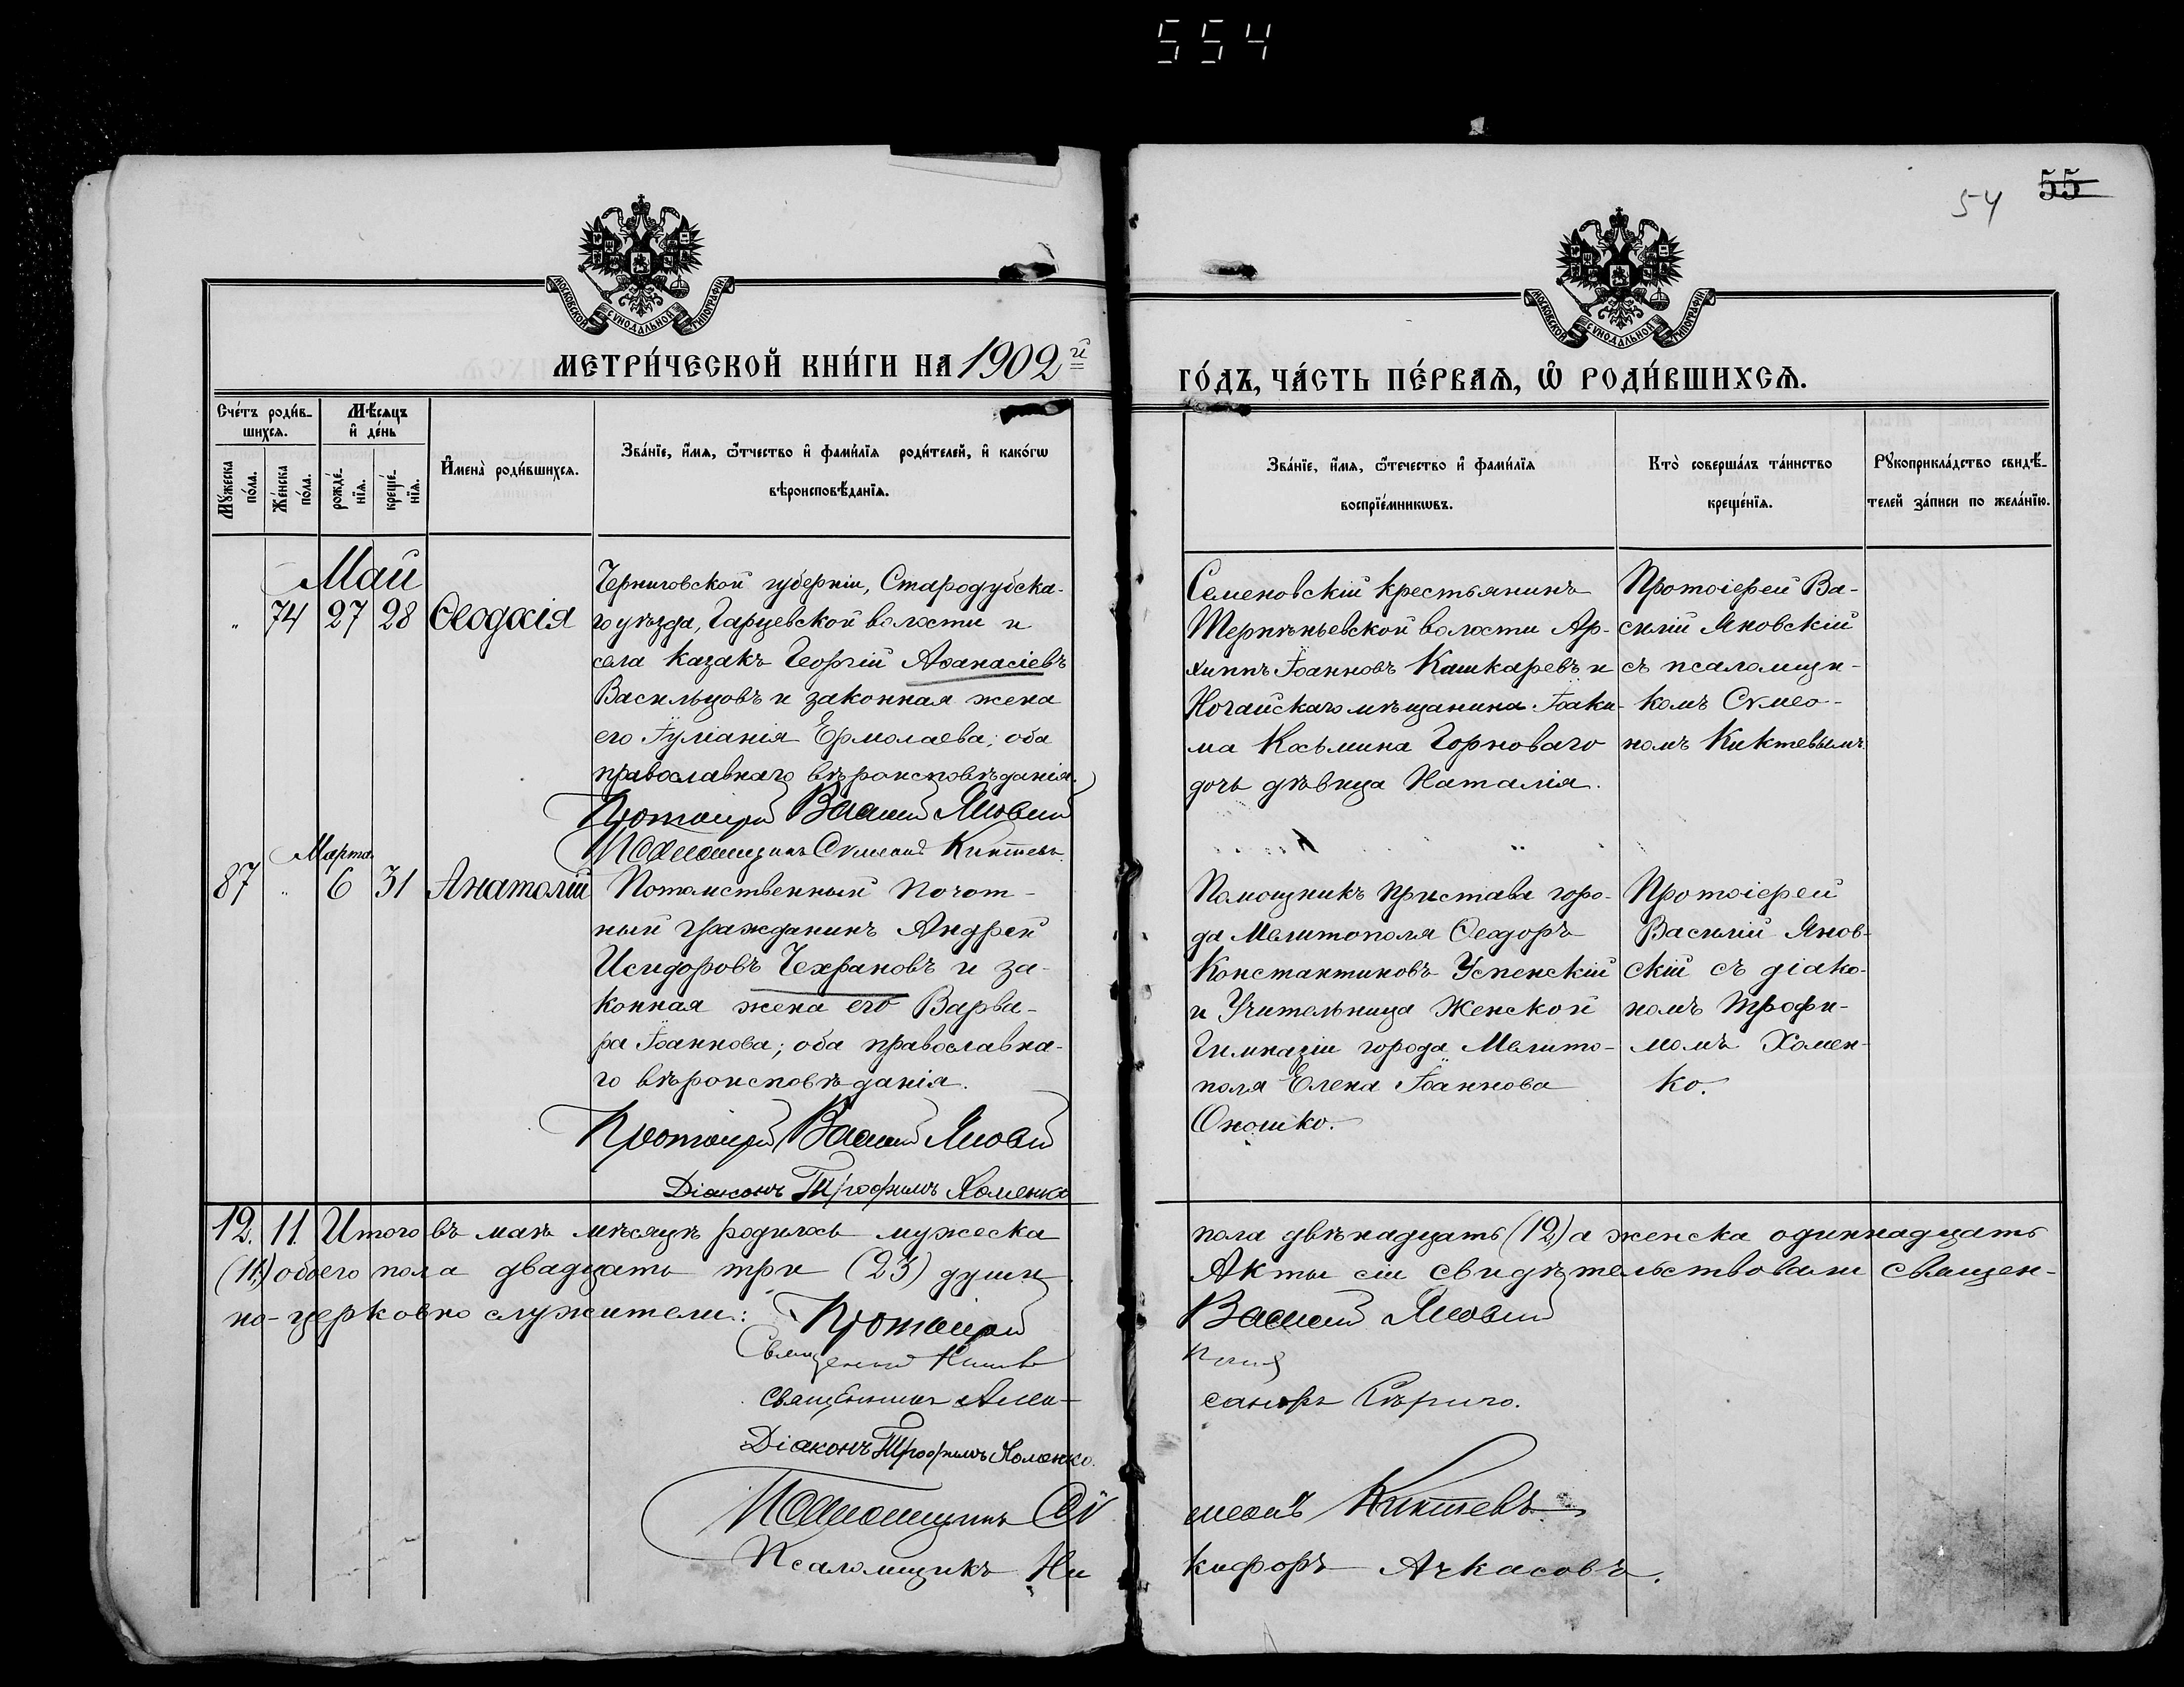 554
54 55
МОСКОВСКОЙ СѴНОДАЛЬНОЙ ТИПОГРАФІИ
МОСКОВСКОЙ СѴНОДАЛЬНОЙ ТИПОГРАФІИ
МЕТРИ́ЧЕСКОЙ КНИ́ГИ НА 1902й
ГО́ДЪ, ЧА́СТЬ ПЕ́РВАѦ, Ѽ РОДИ́ВШИХСѦ.
Сче́тъ роди́в-
шихсѧ.
Мѣ́сѧцъ
и҆ де́нь
Мꙋ́жеска
по́ла.
Же́нска
по́ла.
рожде́-
нїѧ.
креще́-
нїѧ.
И҆мена̀ роди́вшихсѧ.
Зва́нїе, и҆́мѧ, ѻ҆́тчество и҆ фами́лїѧ роди́телей, и҆ како́гѡ
вѣроисповѣ́данїѧ.
Зва́нїе, и҆́мѧ, ѻ҆́течество и҆ фами́лїѧ
воспрїе́мникѡвъ.
Кто̀ соверша́лъ та́инство
креще́нїѧ.
Рꙋкоприкла́дство свидѣ́-
телей за́писи по жела́нїю.
Май
„ 74 27 28 Ѳеодосія
Черниговской губерніи, Стародубска-
го уѣзда, Гарцевской волости и
села казакъ Георгій Аѳанасіевъ
Васильцовъ и законная жена
его Іуліанія Ермолаева; оба
православнаго вѣроисповѣданія.
Протоіерей Василій Яновскій
Псаломщикъ Сѵмеонъ Киктевъ.
Семеновскій крестьянинъ
Терпѣньевской волости Ар-
хиппъ Іоанновъ Кашкаревъ и
Ногайскаго мѣщанина Іоаки-
ма Косьмина Горноваго
дочь дѣвица Наталія.
Протоіерей Ва-
силій Яновскій
съ псаломщи-
комъ Сѵмео-
номъ Киктевымъ.
Марта
87 „ 6 31 Анатолій
Потомственный почот-
ный гражданинъ Андрей
Исидоровъ Чехрановъ и за-
конная жена его Варва-
ра Іоаннова; оба православна-
го вѣроисповѣданія.
Протоіерей Василій Яновскій
Діаконъ Трофимъ Хоменко
Помощникъ пристава горо-
да Мелитополя Ѳеодоръ
Константиновъ Успенскій
и Учительница Женской
Гимназіи города Мелито-
поля Елена Іоаннова
Оношко.
Протоіерей
Василій Янов-
скій съ діако-
номъ Трофи-
момъ Хомен-
ко.
12. 11. Итого въ маѣ мѣсяцѣ родилось мужеска
пола двѣнадцать (12,) а женска одиннадцать
(11,) обоего пола двадцать три (23) души
Акты сіи свидѣтельствовали священ-
но-церковно служители: Протоіерей
Василій Яновскій
Священникъ
Священникъ Алек-
сандръ
Діаконъ Трофимъ Хоменко.
Псаломщикъ Сѵ
меонъ Киктевъ
Псаломщикъ Ни
кифоръ Ачкасовъ.